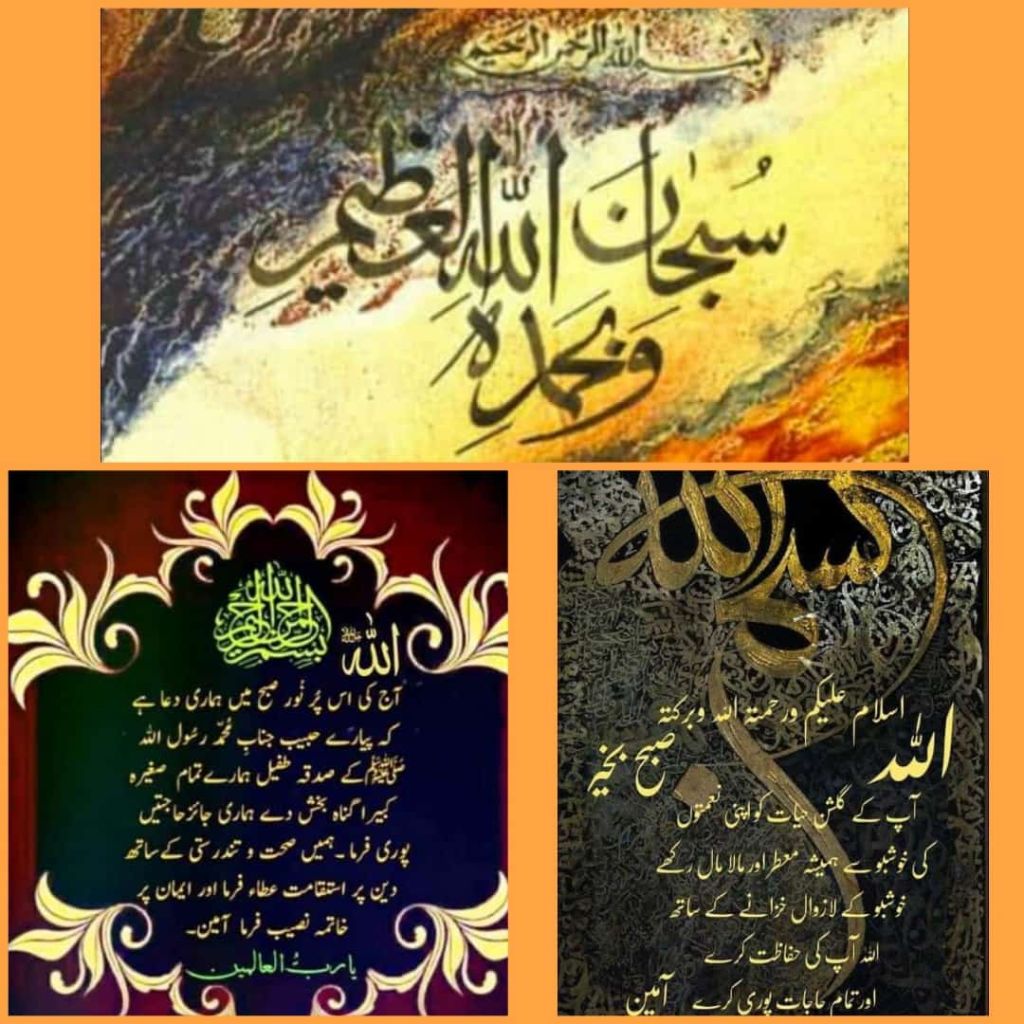 بسم الله الرحمن الرحيم
سُبحٰان اللّٰه العظيمِ
وَبحمدہِ
بسم الله الرحمن الرحيم
اللہ ﷻ
آج کی اس پُر نُور صبح میں ہماری دعا ہے
کہ پیارے حبیب جنابِ مُحَمَّد رسُول اللہ
ﷺ کے صدقہ طفیل ہمارے تمام صغیرہ
کبیرا گناہ بخش دے ہماری جائز حاجتیں
پوری فرما ۔ ہمیں صحت و تندرستی کے ساتھ
دین پر استقامت عطاء فرما اور ایمان پر
خاتمہ نصیب فرما آمین۔
یا ربُّ العالمین
اسلام علیکم ورحمتہ اللہ وبرکتہ
اللہ صبح بخیر
آپ کے گلشن حیات کو اپنی نعمتوں
کی خوشبو سے ہمیشہ معطر اور مالا مال رکھے
خوشبو کے لازوال خزانے کے ساتھ
اللہ آپ کی حفاظت کرے
اور تمام حاجات پوری کرے آمین